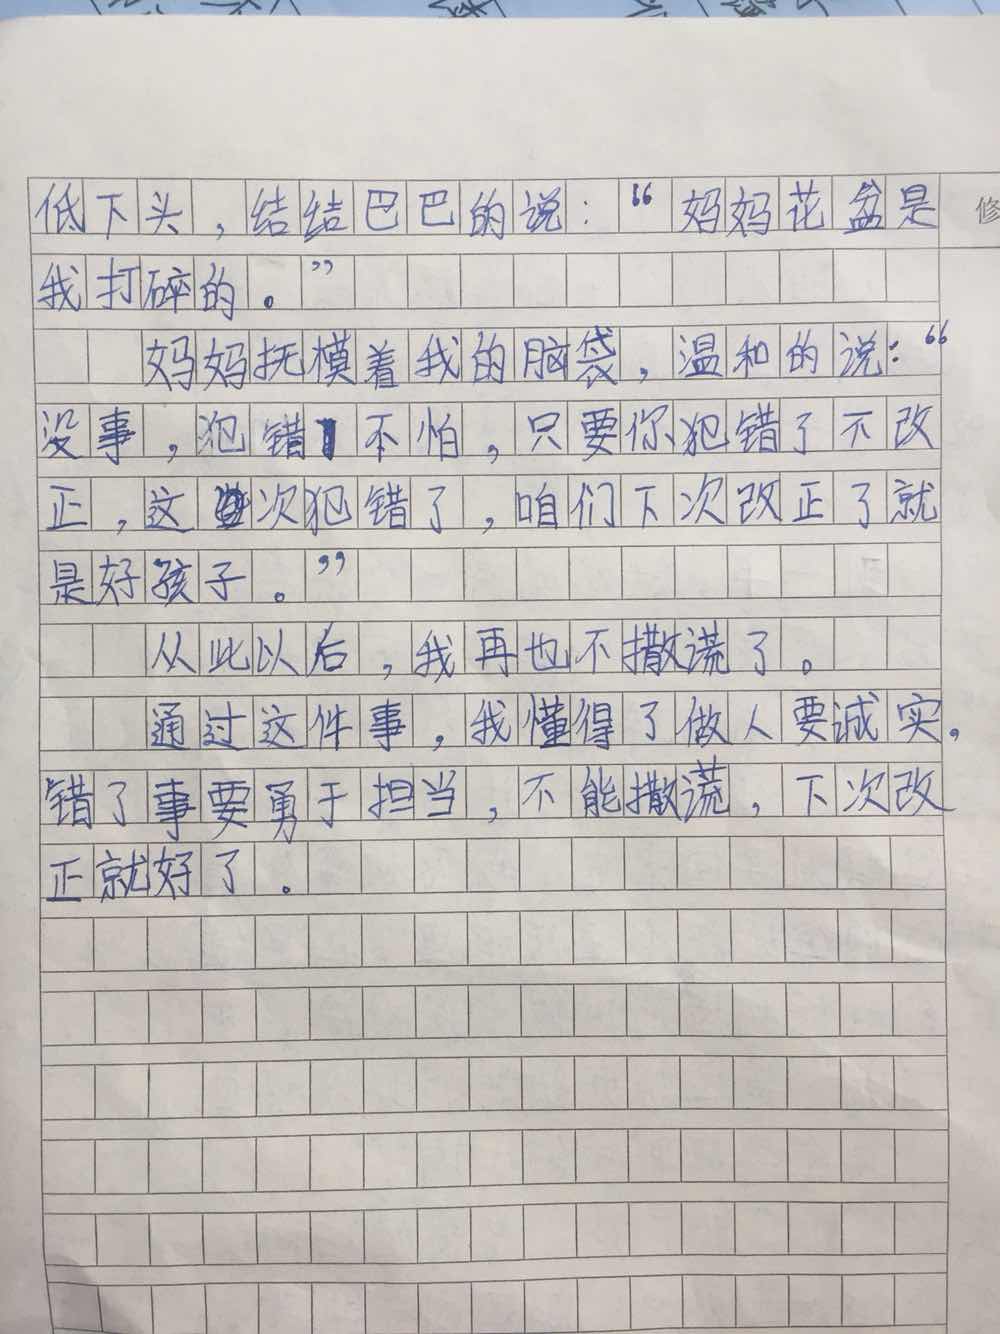 低下头，结结巴巴的说：“妈妈花盆是
我打碎的。”
妈妈抚模着我的脑袋，温和的说：“
没事，犯错不怕，只要你犯错了不改
正，这次犯错了，咱们下次改正了就
是好孩子。”
从此以后，我再也不撒谎了。
通过这件事，我懂得了做人要诚实，
错了事要勇于担当，不能撒谎，下次改
正就好了。
修